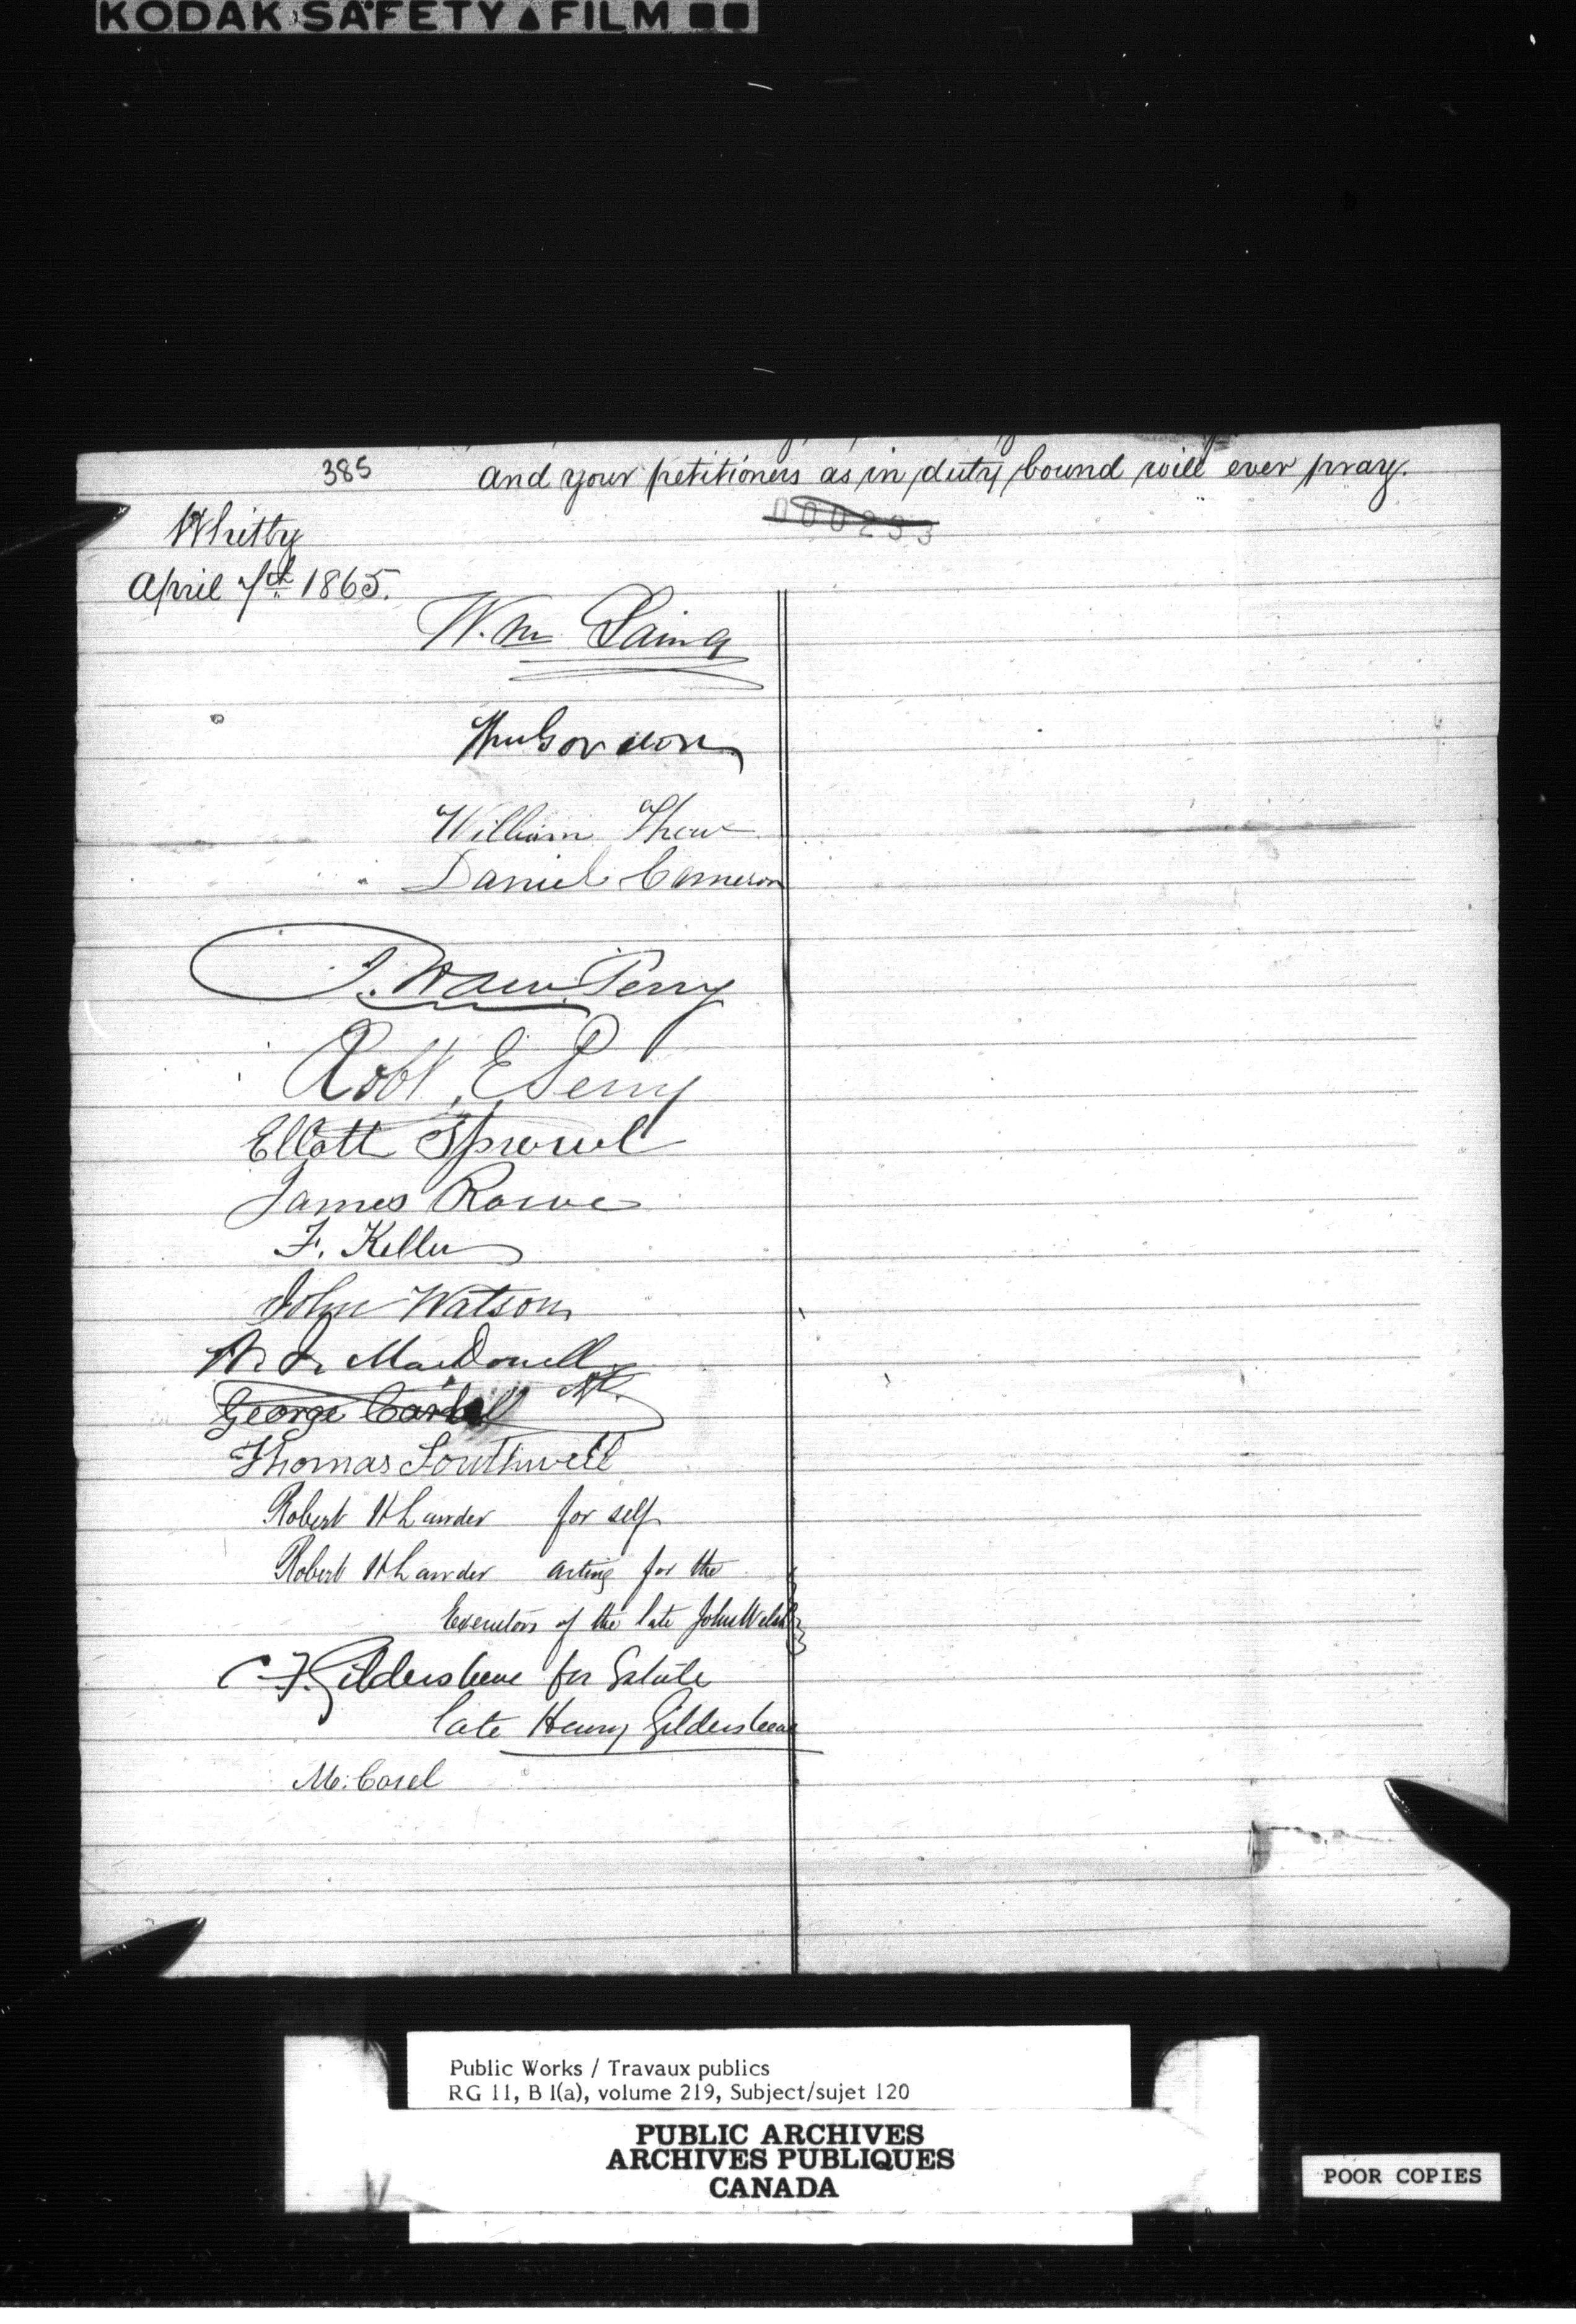 KODAK SAFETY FILM
385
and your petitioners as in duty bound will ever pray.
000233
Whitby
April 7th 1865.
Wm Laing
Wm Gordon
William Thow
Daniel Cameron
J. Ham Perry
Robt. E Perry
Elliott Sprowl
James Rowe
F. Keller
John Watson
MacDonell
George
Thomas Southwell
Robert H Lauder for self
Robert H Lauder acting for the
Executors of the late John Welsh
C. F. Gildersleeve for Estate
late Henry Gildersleeve
M.
Public Works / Travaux publics
RG 11, B 1(a), volume 219, Subject/sujet 120
PUBLIC ARCHIVES
ARCHIVES PUBLIQUES
CANADA
POOR COPIES